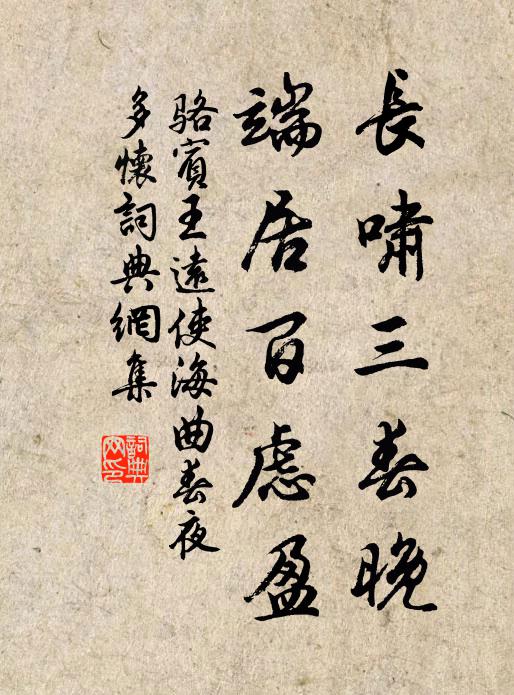 長嘯三春晚
端居百慮盈
駱賓王遠使海曲春夜
多懷詞典網集
詞典網印